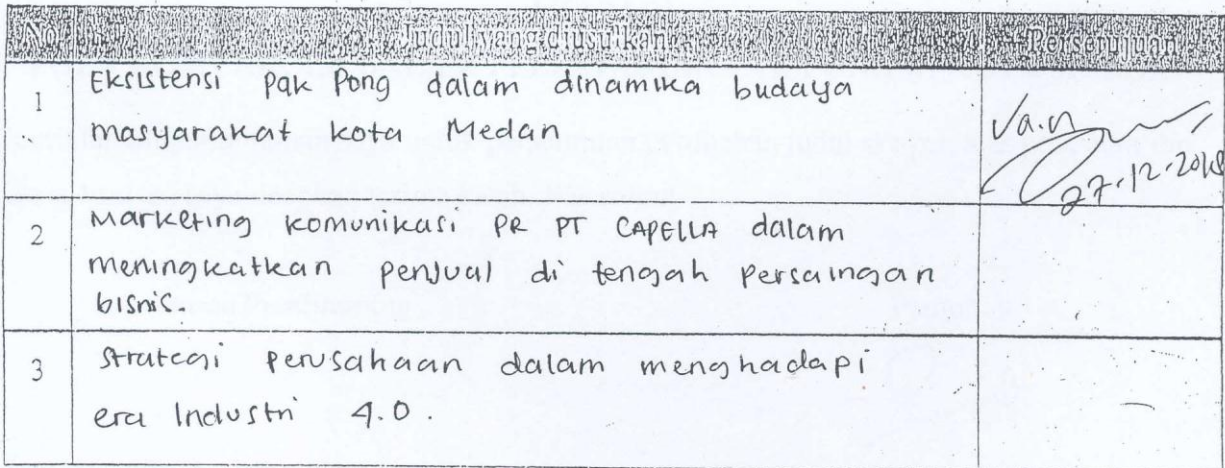 No Judul yang diusulkan Persetujuan
1 Eksistensi Pak Pong dalam dinamika budaya
masyarakat kota Medan
27-12-2018
2 Marketing komunikasi PR PT CAPELLA dalam
meningkatkan penjual di tengah persaingan
bisnis.
3 Strategi perusahaan dalam menghadapi
era Industri 4.0.